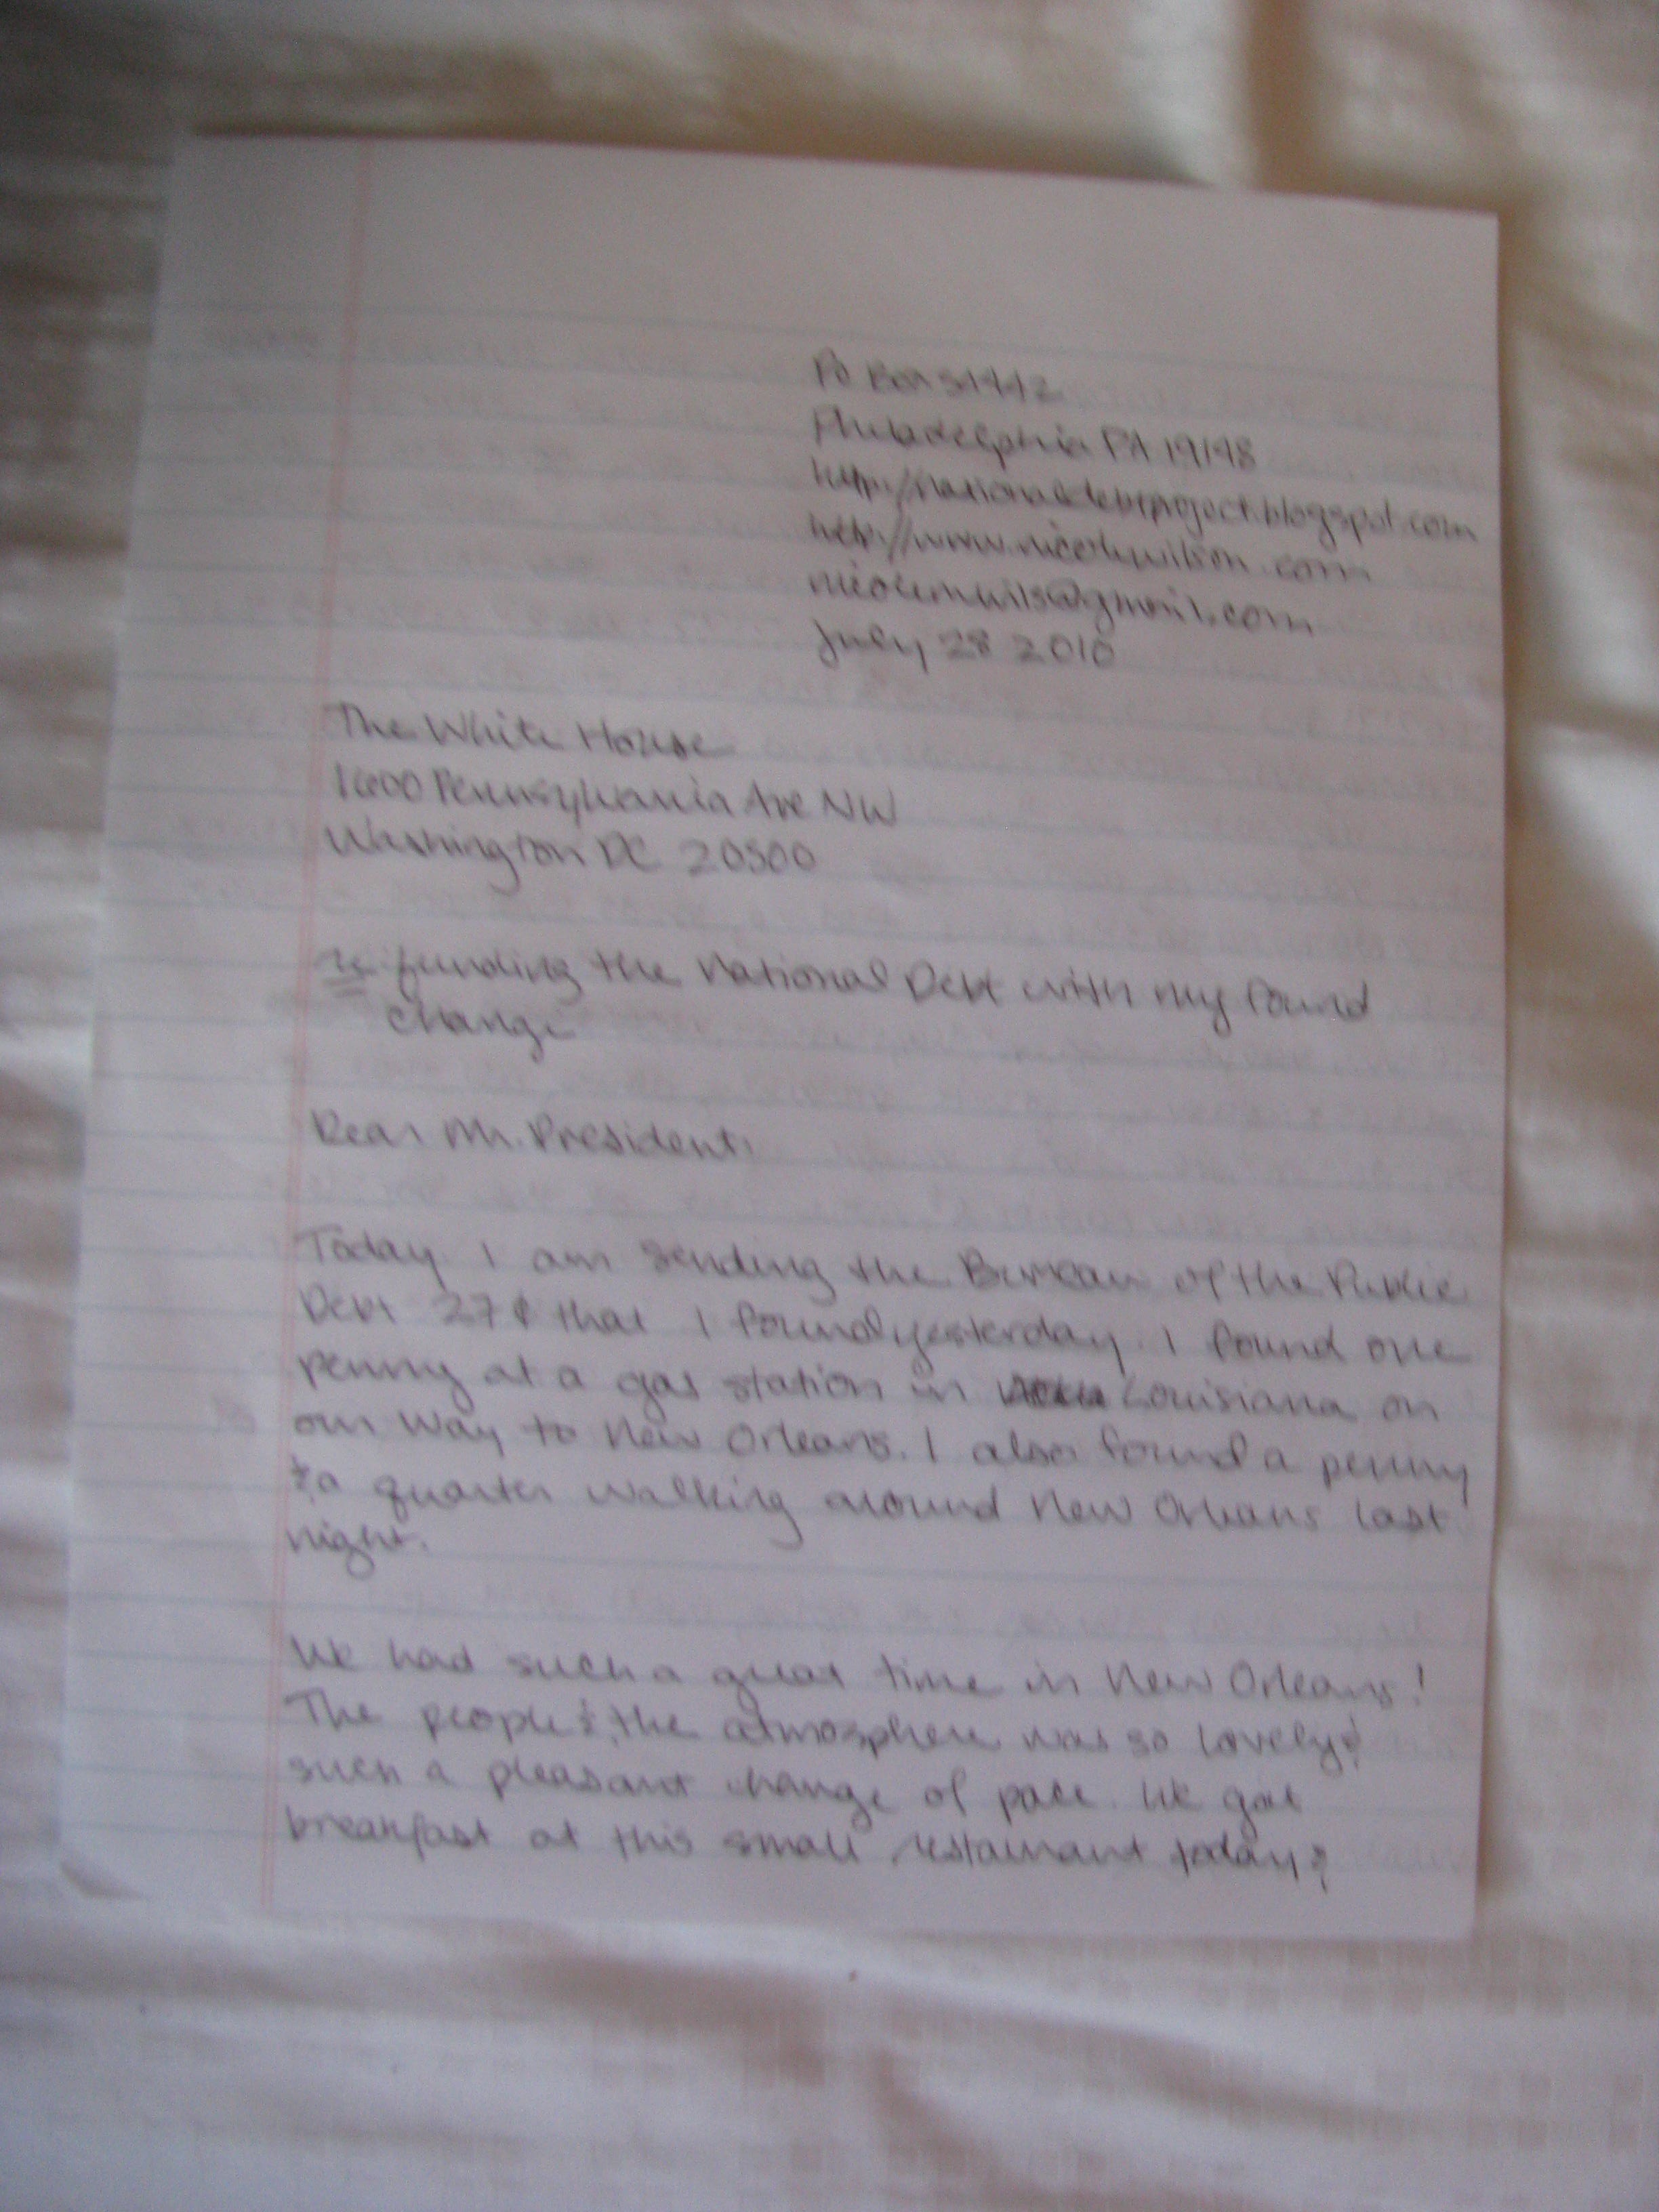 Philadelphia PA 19148
http://nationaldebtproject.blogspot.com
July 28 2010
The White House
1600 Pennsylvania Ave NW
Washington DC 20500
re: funding the National Debt with my found
change
Dear Mr. President,
Today I am sending the Bureau of the Public
Debt 27¢ that I found yesterday. I found one
penny at a gas station in Louisiana on
our way to New Orleans. I also found a penny
& a quarter walking around New Orleans last
night.
We had such a great time in New Orleans!
The people & the atmosphere was so lovely &
such a pleasant change of pace. We got
breakfast at this small restaurant today &